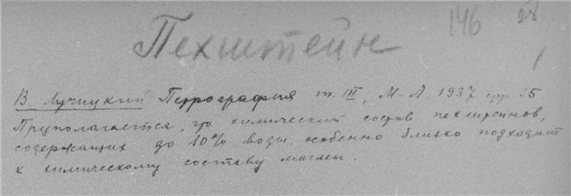 146
Пехштейн
1
В Лучицкий Петрография т. III, М-Л 1937 стр 25
Предполагается, что химический состав пехштейнов,
содержащих до 10% воды особенно близко подходит
к химическому составу магмы.